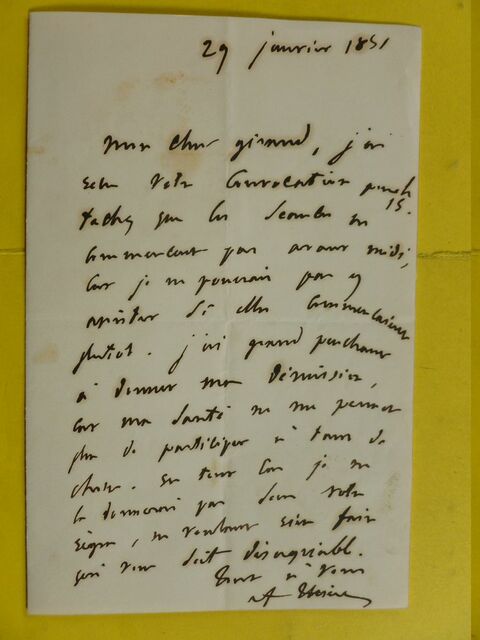 29 janvier 1851
Mon cher giraud, j'ai
reçu votre convocation pour le
15.
tachez que les séances ne
commencent pas avant midi,
car je ne pourrais pas y
assister si elles commencaient
plutot. j'ai grand penchant
à donner ma démission,
car ma santé ne me permet
plus de participer à tant de
choses. en tout cas je ne
la donnerai pas sans votre
, ne voulant rien faire
qui vous soit désagréable.
tout à vous